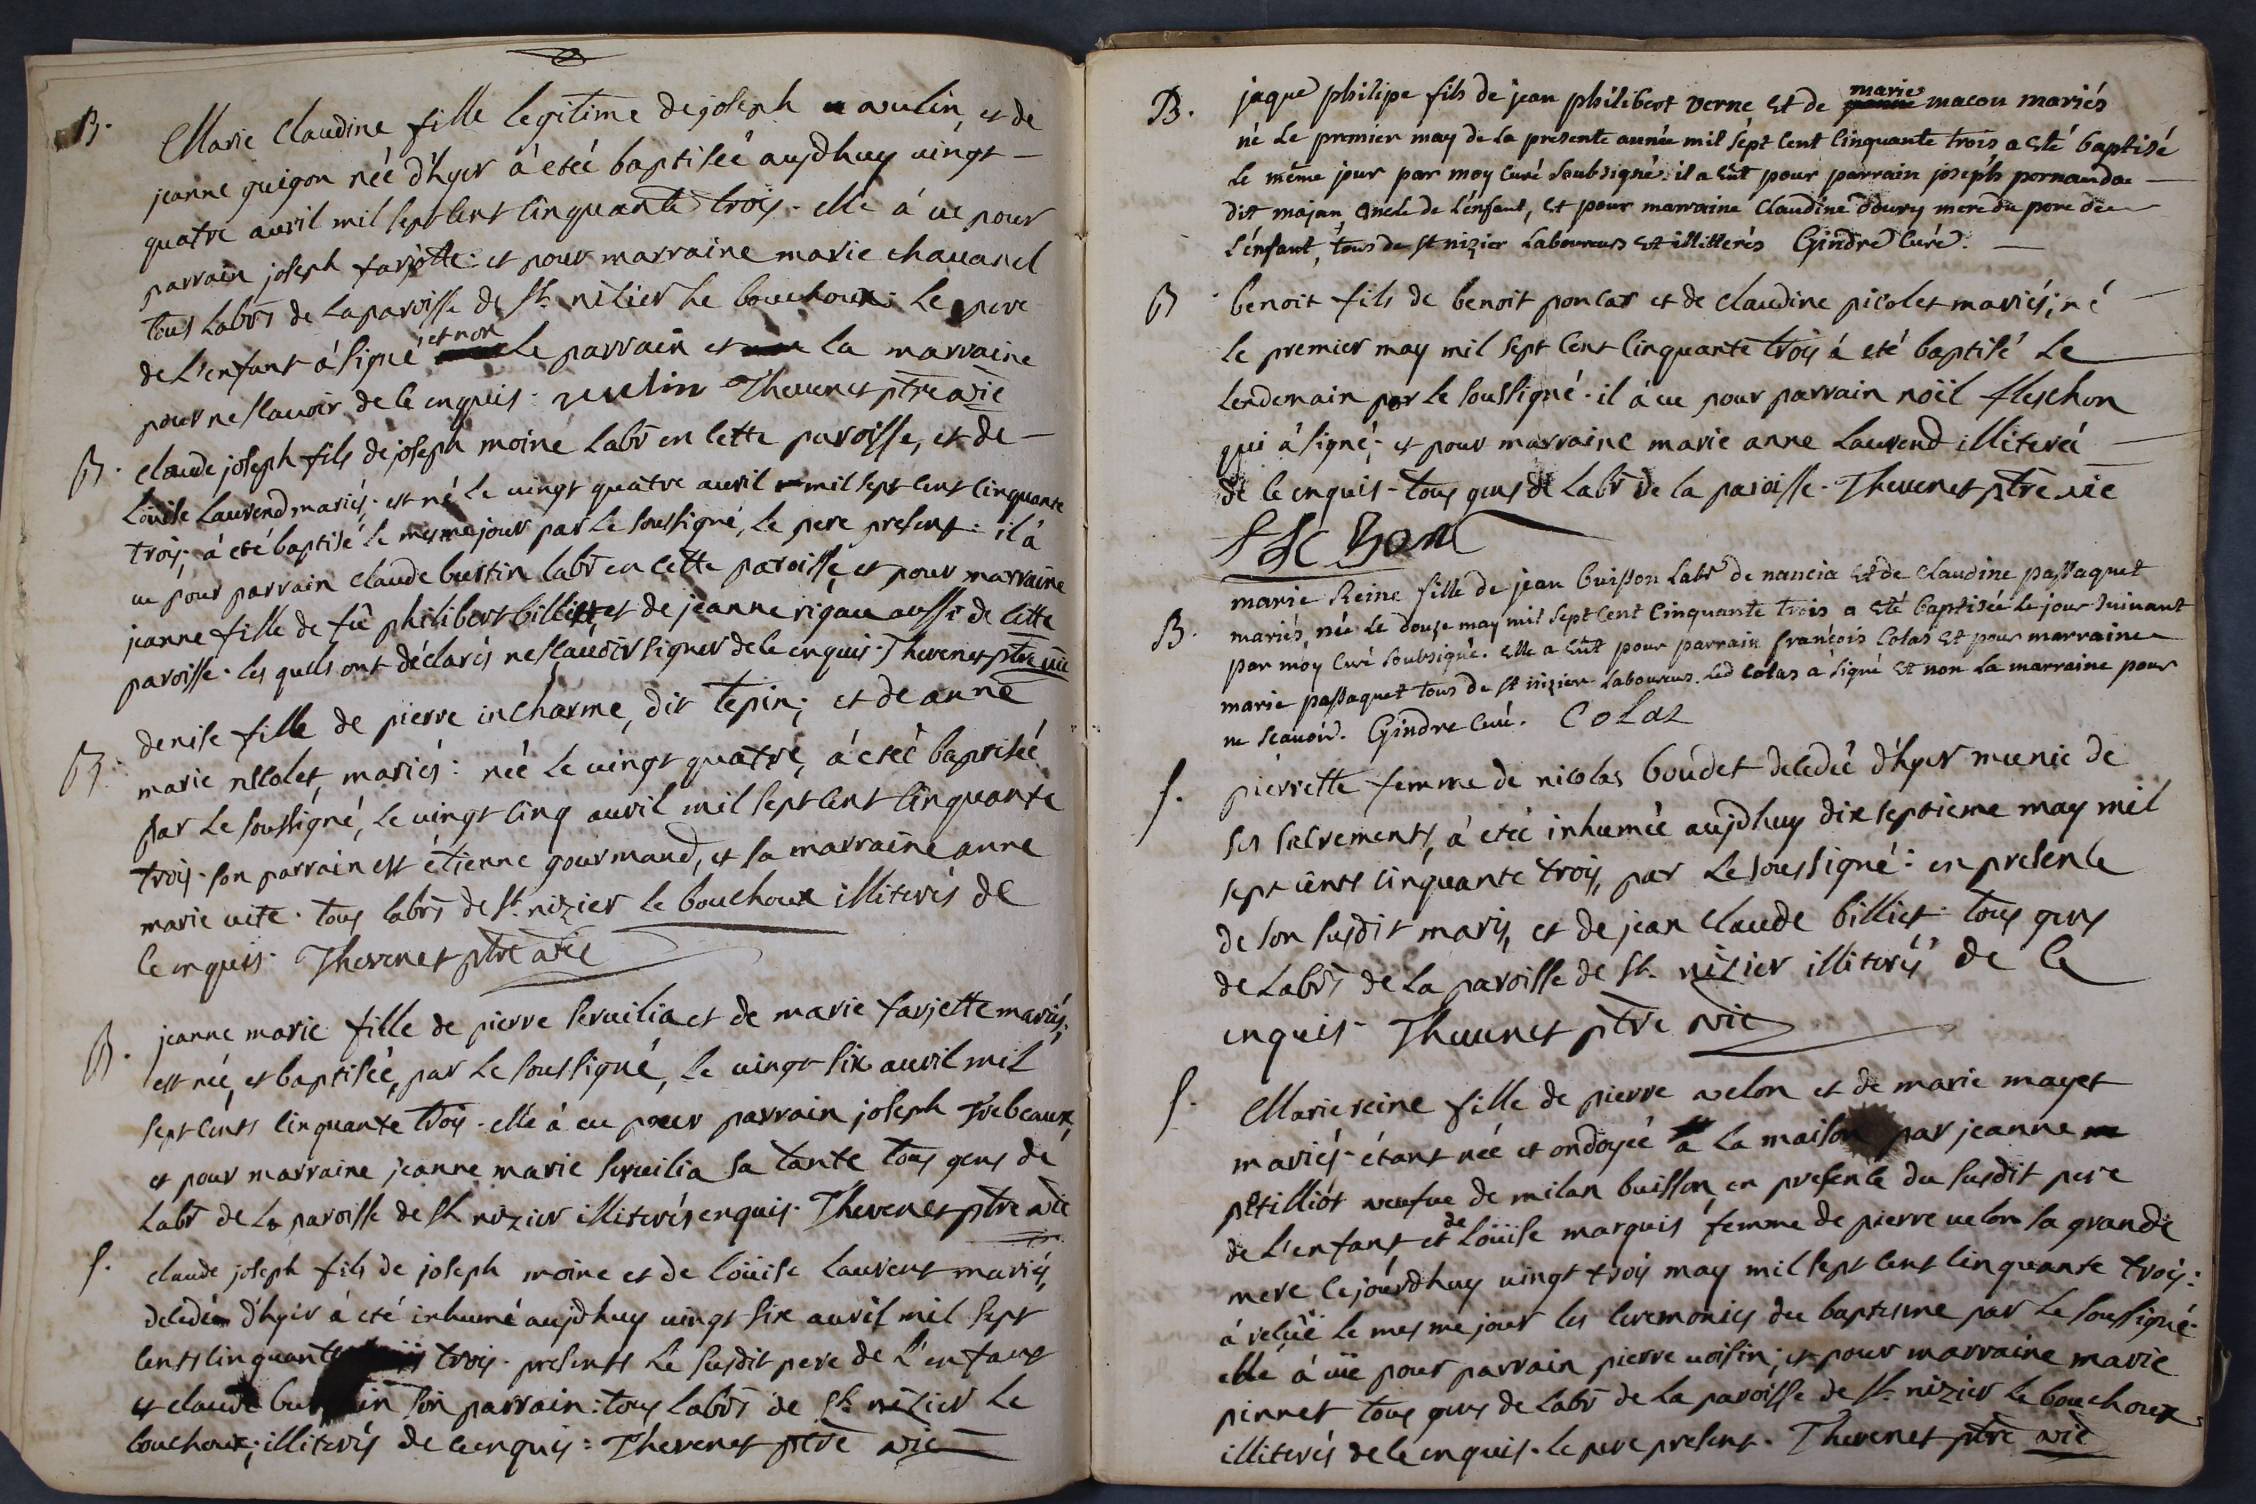 B.
Marie Claudine fille legitime de joseph vulin, et de
jeanne guigon néé d'hyer á etéé baptiséé aujdhuy vingt
quatre auril mil sept cent cinquante trois. elle á ue pour
parrain joseph farjotte: et pour marraine marie chauanel
tous labrs de la paroisse de St. nizier le bouchoux: le pere
de l'enfant á signé et non le parrain et la marraine
pour ne scauoir de ce enquis. vulin Theuenet ptre vic
B.
claude joseph fils de joseph moine labr en cette paroisse, et de
Louise Laurend mariés. est né le uingt quatre auril mil sept cent cinquante
trois, á eté baptisé le mesme jour par le soussigné, le pere present: il á
ue pour parrain claude burtin labr en cette paroisse, et pour marraine
jeanne fille de fû philibert billiet, et de jeanne rigaue aussi de cette
paroisse. les quels ont déclarés ne scauoir signer de ce enquis. Theuenet ptre vic
B.
denise fille de pierre incharme, dit tepin; et de anne
marie nicolet, mariés: néé le uingt quatre, á etéé baptiséé
par le soussigné, le uingt cinq auril mil sept cent cinquante
trois. son parrain est étienne gourmand, et sa marraine anne
marie uite. tous labrs de St. nizier le bouchoux illiterés de
ce enquis. Theuenet ptre vic
B.
jeanne marie fille de pierre seruilia et de marie farjette mariés,
est néé, et baptiséé, par le soussigné, le uingt six auril mil
sept cents cinquante trois. elle á eu pour parrain joseph trebeaux,
et pour marraine jeanne marie seruilia sa tante tous gens de
labr de la paroisse de St nizier illiterés enquis. Theuenet ptre vic
S.
claude joseph fils de joseph moine et de Louise Laurent mariés,
decedé d'hyer á eté inhumé aujdhuy uingt six auril mil sept
cents cinquante trois. presents le susdit pere de l'enfant
et claude burtin son parrain: tous labrs de St. nizier le
bouchoux; illiterés de ce enquis: Theuenet ptre vic
B.
jaque philipe fils de jean philibert verne Et de marie macon mariés
né Le premier may de la presente année mil sept cent cinquante trois a Eté baptisé
le même jour par moy curé soubsigné. il a Eût pour parrain joseph pornanda
dit majan oncle de L'énfant, Et pour marraine Claudine doury mere du pere de
L'énfant, tous de St nizier Laboureurs Et illitterés Gindre Curé.
B
benoit fils de benoit poncat et de claudine picolet mariés; né
le premier may mil sept cent cinquante trois á eté baptisé le
lendemain par le soussigné. il á ue pour parrain noël fleschon
qui á signé; et pour marraine marie anne Laurend illiteréé
de ce enquis. tous gens de labr de la paroisse. Theuenet ptre vic
flechon
B.
marie Reine fille de jean buisson labr de nancia Et de claudine passaquet
mariés, née le douze may mil sept cent cinquante trois a Eté baptisée le jour suivant
par moy Curé soubsigné. Elle a Eût pour parrain françois Colas Et pour marraine
marie passaquet tous de St nizier Laboureurs. led Colas a signé Et non la marraine pour
ne scauoir. Gindre Curé. Colas
S.
pierrette femme de nicolas boudet decedéé d'hyer munie de
ses sacrements, á etéé inhuméé aujdhuy dix septieme may mil
sept cents cinquante trois, par le soussigné: en presence
de son susdit maris, et de jean claude billiet: tous gens
de labrs de la paroisse de St. nizier illiterés de ce
enquis. Theuenet ptre vic
S.
Marie reine fille de pierre velon et de marie mayet
mariés. étant néé et ondoyéé á la maison par jeanne
petilliot veufue de milan buisson, en presence du susdit pere
de l'enfant et de Louise marquis femme de pierre uelon sa grande
mere cejourdhuy uingt trois may mil sept cent cinquante trois:
á reçûe le mesme jour les ceremonies du baptesme par le soussigné.
elle á ûe pour parrain pierre uoisin; et pour marraine marie
pinnet tous gens de labr de la paroisse de St. nizier le bouchoux
illiterés de ce enquis. le pere present. Theuenet ptre vic